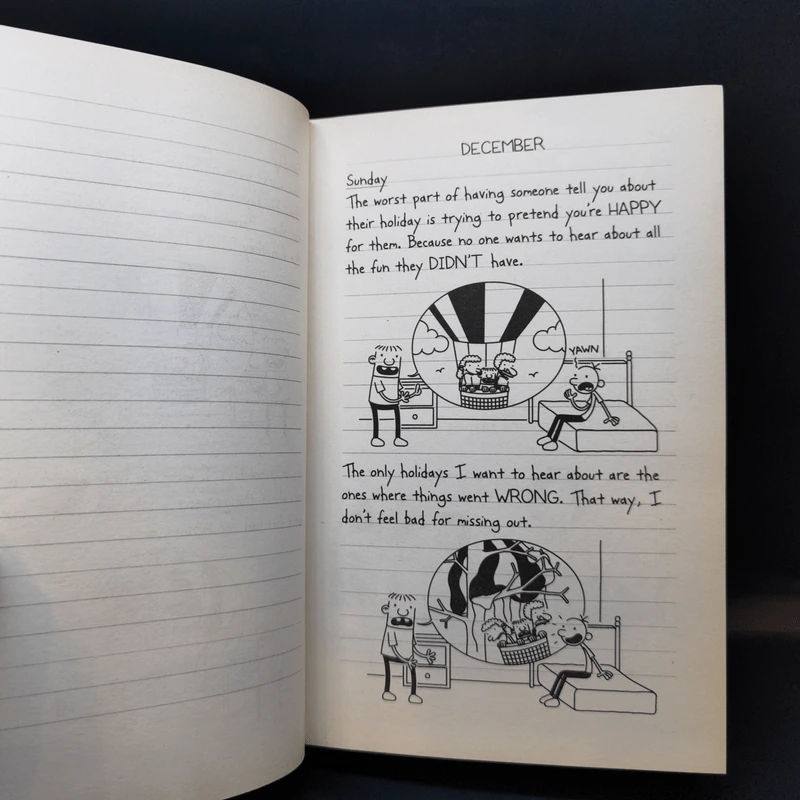 DECEMBER
Sunday
The worst part of having someone tell you about
their holiday is trying to pretend you're HAPPY
for them. Because no one wants to hear about all
the fun they DIDN'T have.
YAWN
The only holidays I want to hear about are the
ones where things went WRONG. That way, I
don't feel bad for missing out.